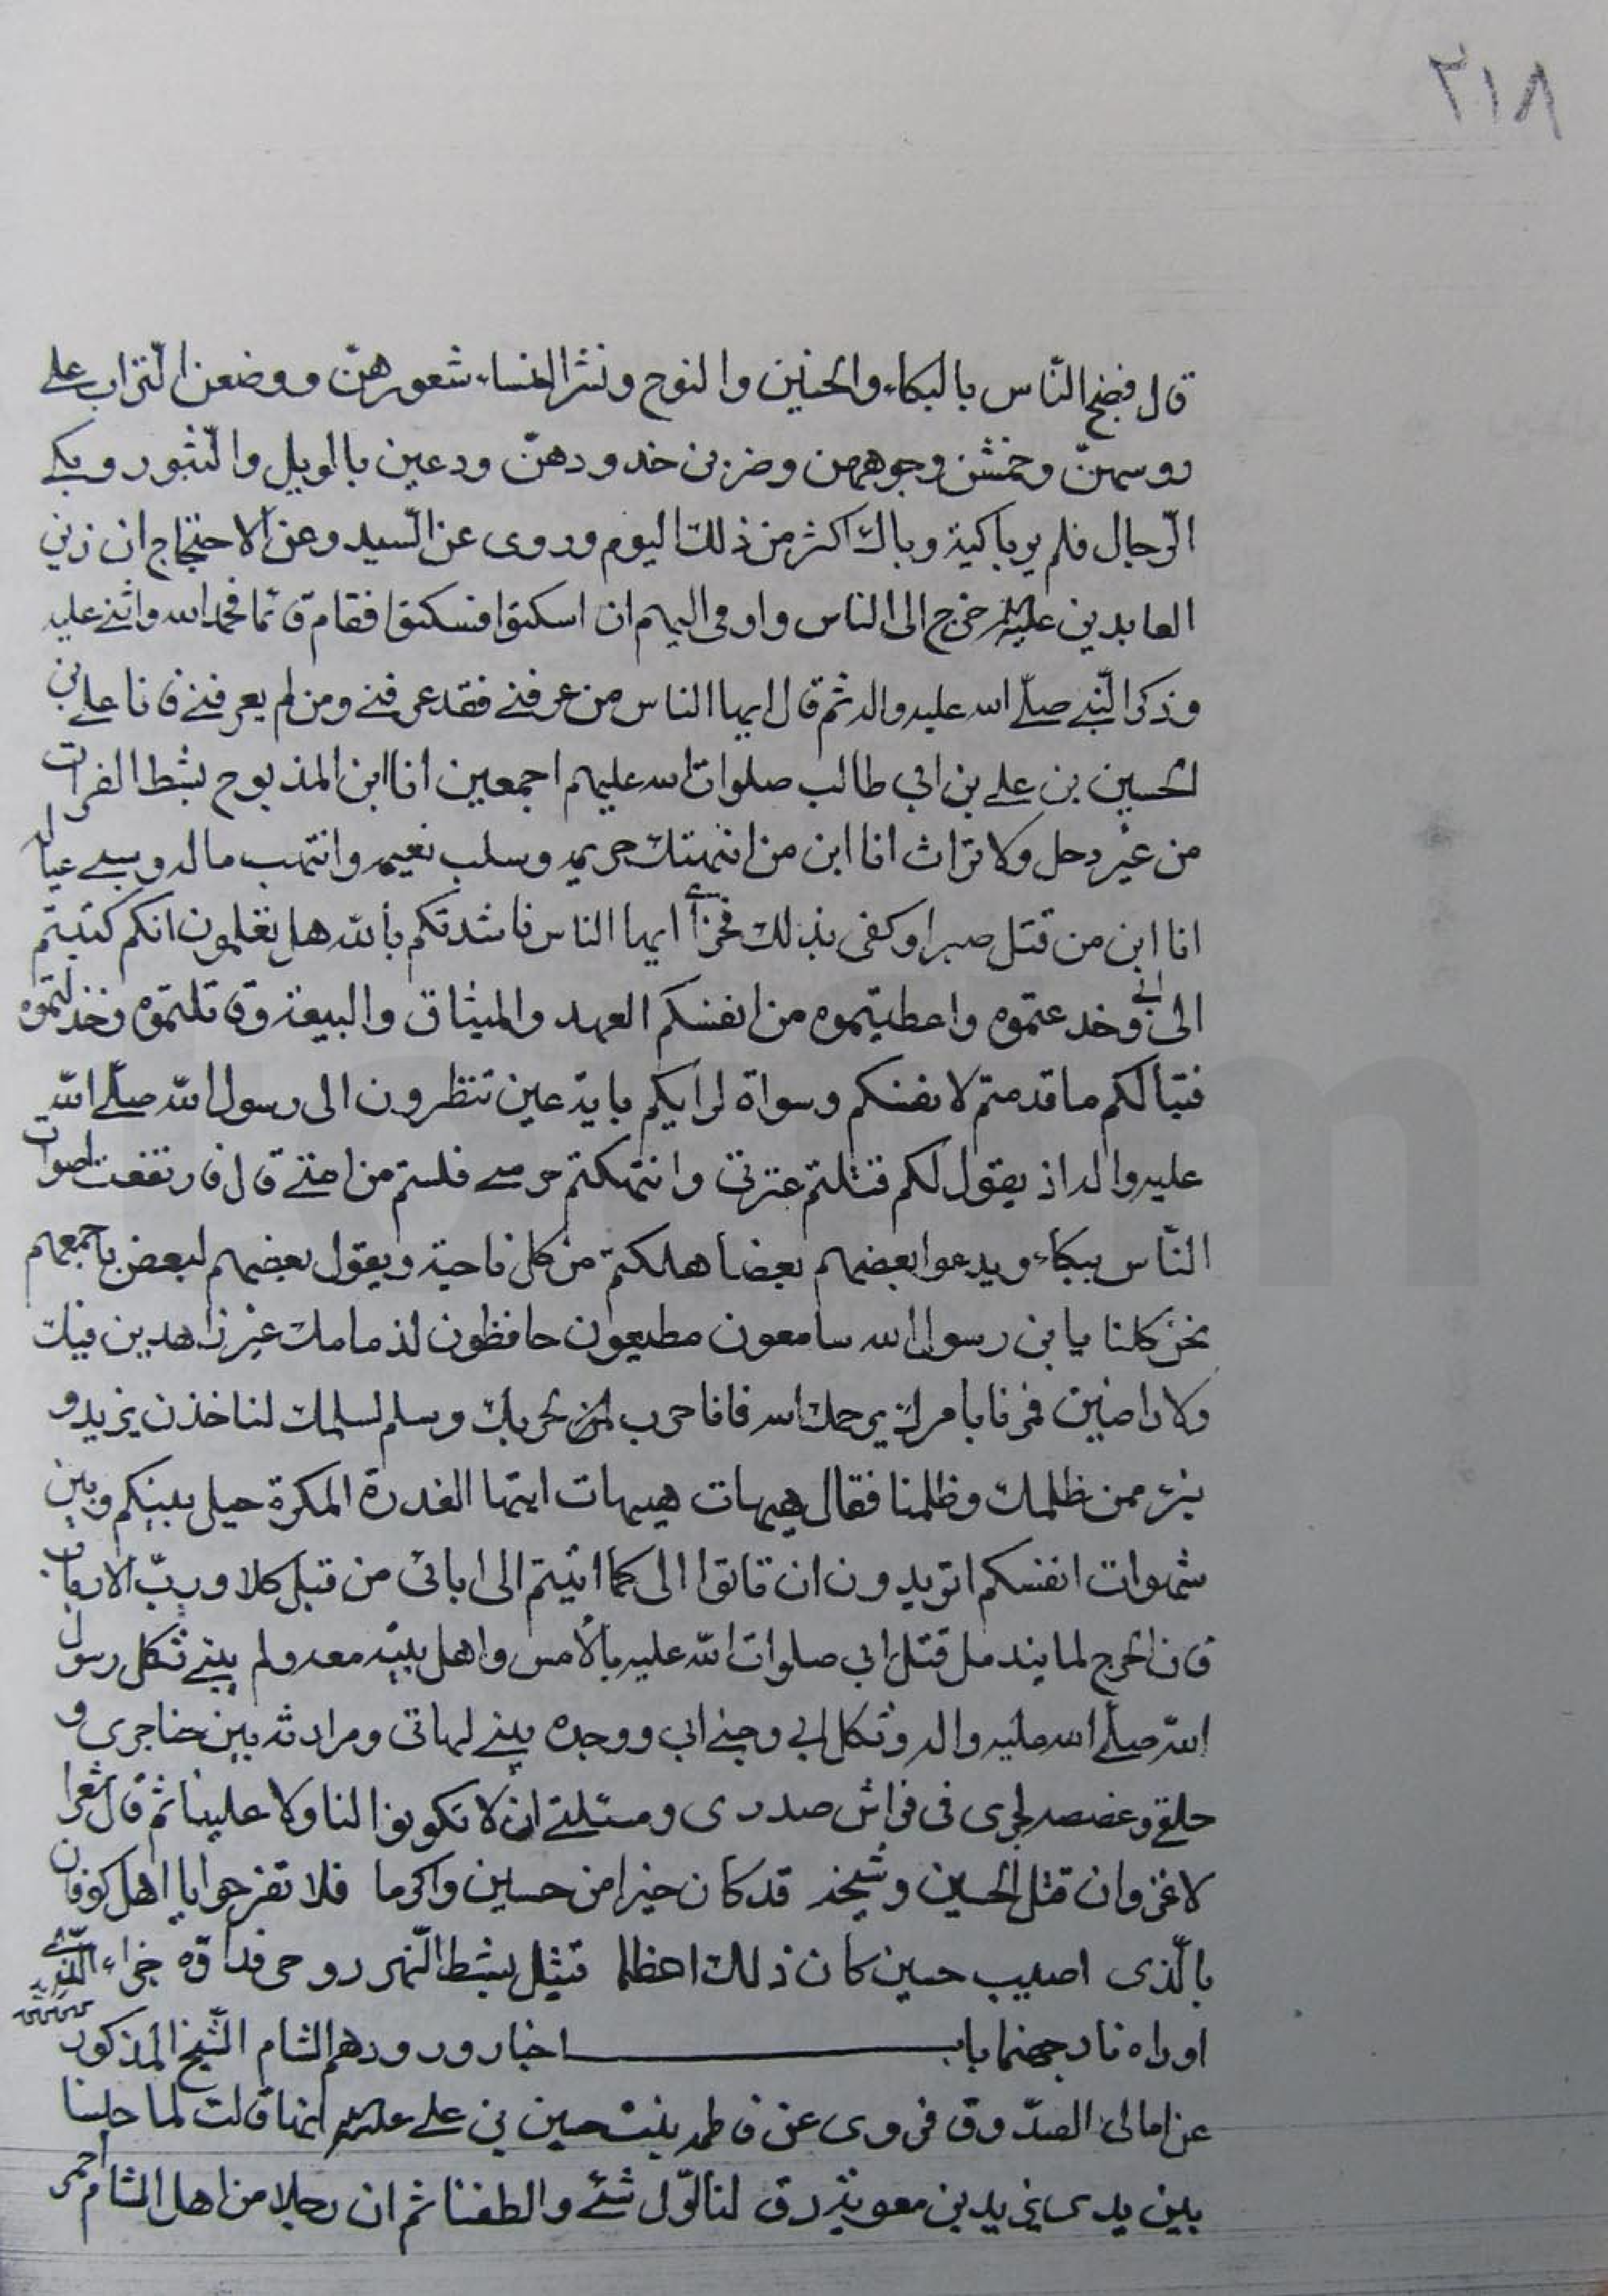 ٢١٨
قال فضج النّاس بالبكاء والحنين والنوح ونشر النساء شعورهنّ ووضعن التّراب على
روسهنّ وخمشن وجوههن وضربن خدودهنّ ودعين بالويل والثّبور وبكى
الرّجال فلم ير باكية وباك اكثر من ذلك اليوم وروى عن السّيد وعن الاحتجاج ان زين
العابدين عليه خرج الى الناس واومى اليهم ان اسكتوا فسكتوا فقام قائما فحمد الله واثنى عليه
وذكر النّبى صلّى الله عليه واله ثم قال ايها الناس من عرفنى فقد عرفنى ومن لم يعرفنى فانا على بن
الحسين بن على بن ابى طالب صلوات الله عليهم اجمعين انا ابن المذبوح بشط الفرات
من غير دحل ولا تراث انا ابن من انتهتك حريمه وسلب نعيمه وانتهب ماله وسبى عياله
انا ابن من قتل صبرا وكفى بذلك فخراً ايها الناس ناشدتكم بالله هل تعلمون انكم كتبتم
الى ابى وخدعتموه واعطيتموه من انفسكم العهد والميثاق والبيعة وقاتلتموه وخذلتموه
فتبا لكم ما قدمتم لانفسكم وسواة لرايكم باية عين تنظرون الى رسول الله صلّى الله
عليه واله اذ يقول لكم قتلتم عترتى وانتهكتم حرمتى فلستم من امتى قال فارتفعت اصوات
النّاس ببكاء ويدعوا بعضهم بعضا هلكتم من كل ناحية ويقول بعضهم لبعض باجمعهم
نحن كلنا يا بن رسول الله سامعون مطيعون حافظون لذمامك غير زاهدين فيك
ولا راضين فمرنا بامرك يرحمك الله فانا حرب لحربك وسلم لسلمك لناخذن يزيد و
نبرء ممن ظلمك وظلمنا فقال هيهات هيهات ايتها الغدرة المكرة حيل بينكم وبين
شهوات انفسكم اتريدون ان تاتوا الى كما اتيتم الى ابائى من قبل كلا وربّ الارباب
فان الجرح لما يندمل قتل ابى صلوات الله عليه بالأمس واهل بيته معه ولم ينسى ثكل رسول
الله صلّى الله عليه واله وثكل ابى وبنى ابى ووجده بينى لهاتى ومرارته بين حناجرى و
حلقى وغصصه تجرى فى فراش صدرى ومسئلتى ان لا تكونوا لنا ولا علينا ثم قال شعرا
لا غرو ان قتل الحسين وشيخه قد كان خيرا من حسين واكرما فلا تفرحوا يا اهل كوفان
بالّذى اصيب حسين كان ذلك اعظما قتيل بشط النّهر روحى فداؤه جزاء الّذى
اوراه نار جهنما باب اخبار ورودهم الشام الشّيخ المذكور
عن امالى الصدّوق فروى عن فاطمه بنت حسين بن على انها قالت لما جلسنا
بين يدى يزيد بن معوية رق لنا اوّل شئ والطفنا ثم ان رجلا من اهل الشام احمر